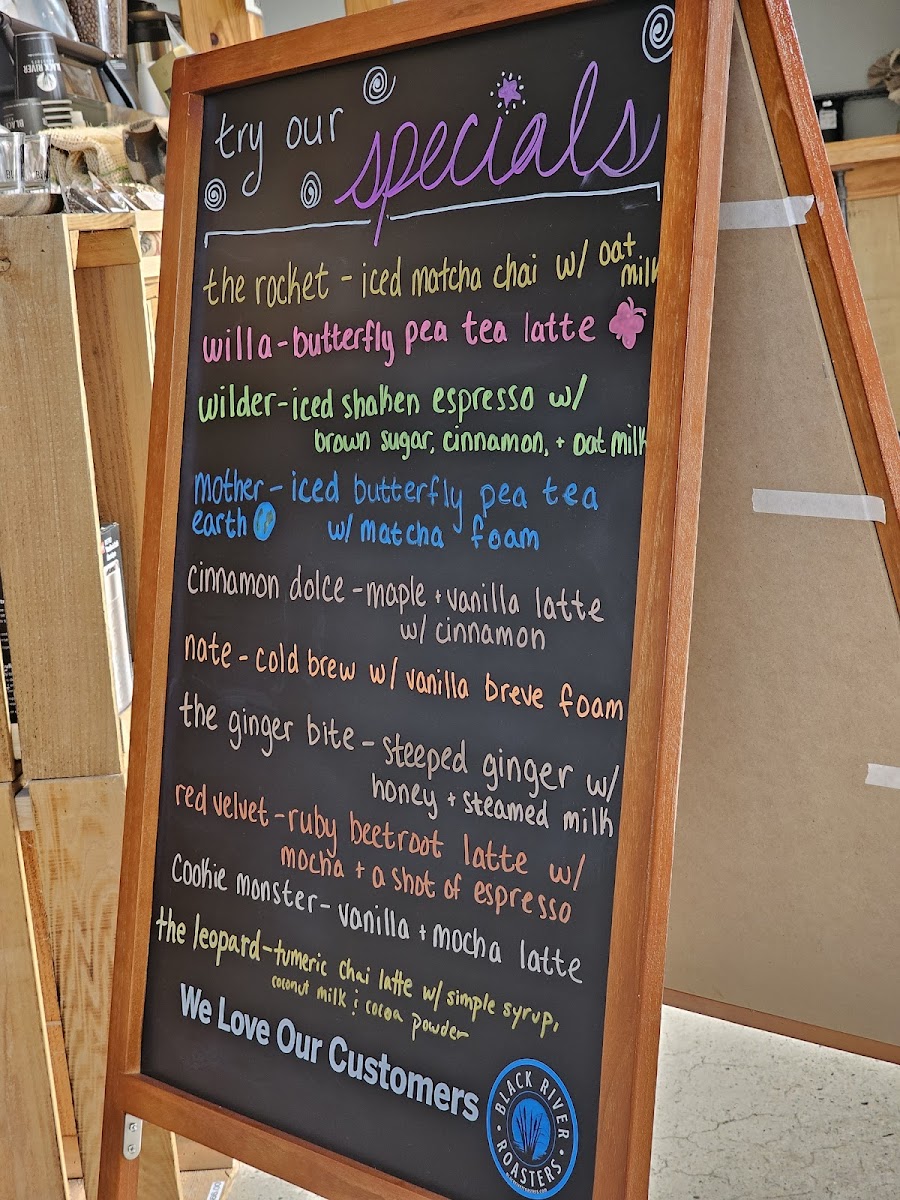 try our specials
the rocket - iced matcha chai w/ oat
milk
willa - butterfly pea tea latte
wilder - iced shaken espresso w/
brown sugar, cinnamon, + oat milk
mother - iced butterfly pea tea
earth w/ matcha foam
cinnamon dolce - maple + vanilla latte
w/ cinnamon
nate - cold brew w/ vanilla breve foam
the ginger bite - steeped ginger w/
honey + steamed milk
red velvet - ruby beetroot latte w/
mocha + a shot of espresso
cookie monster - vanilla + mocha latte
the leopard - tumeric chai latte w/ simple syrup,
coconut milk & cocoa powder
We Love Our Customers
BLACK RIVER
ROASTERS
BLACK RIVER